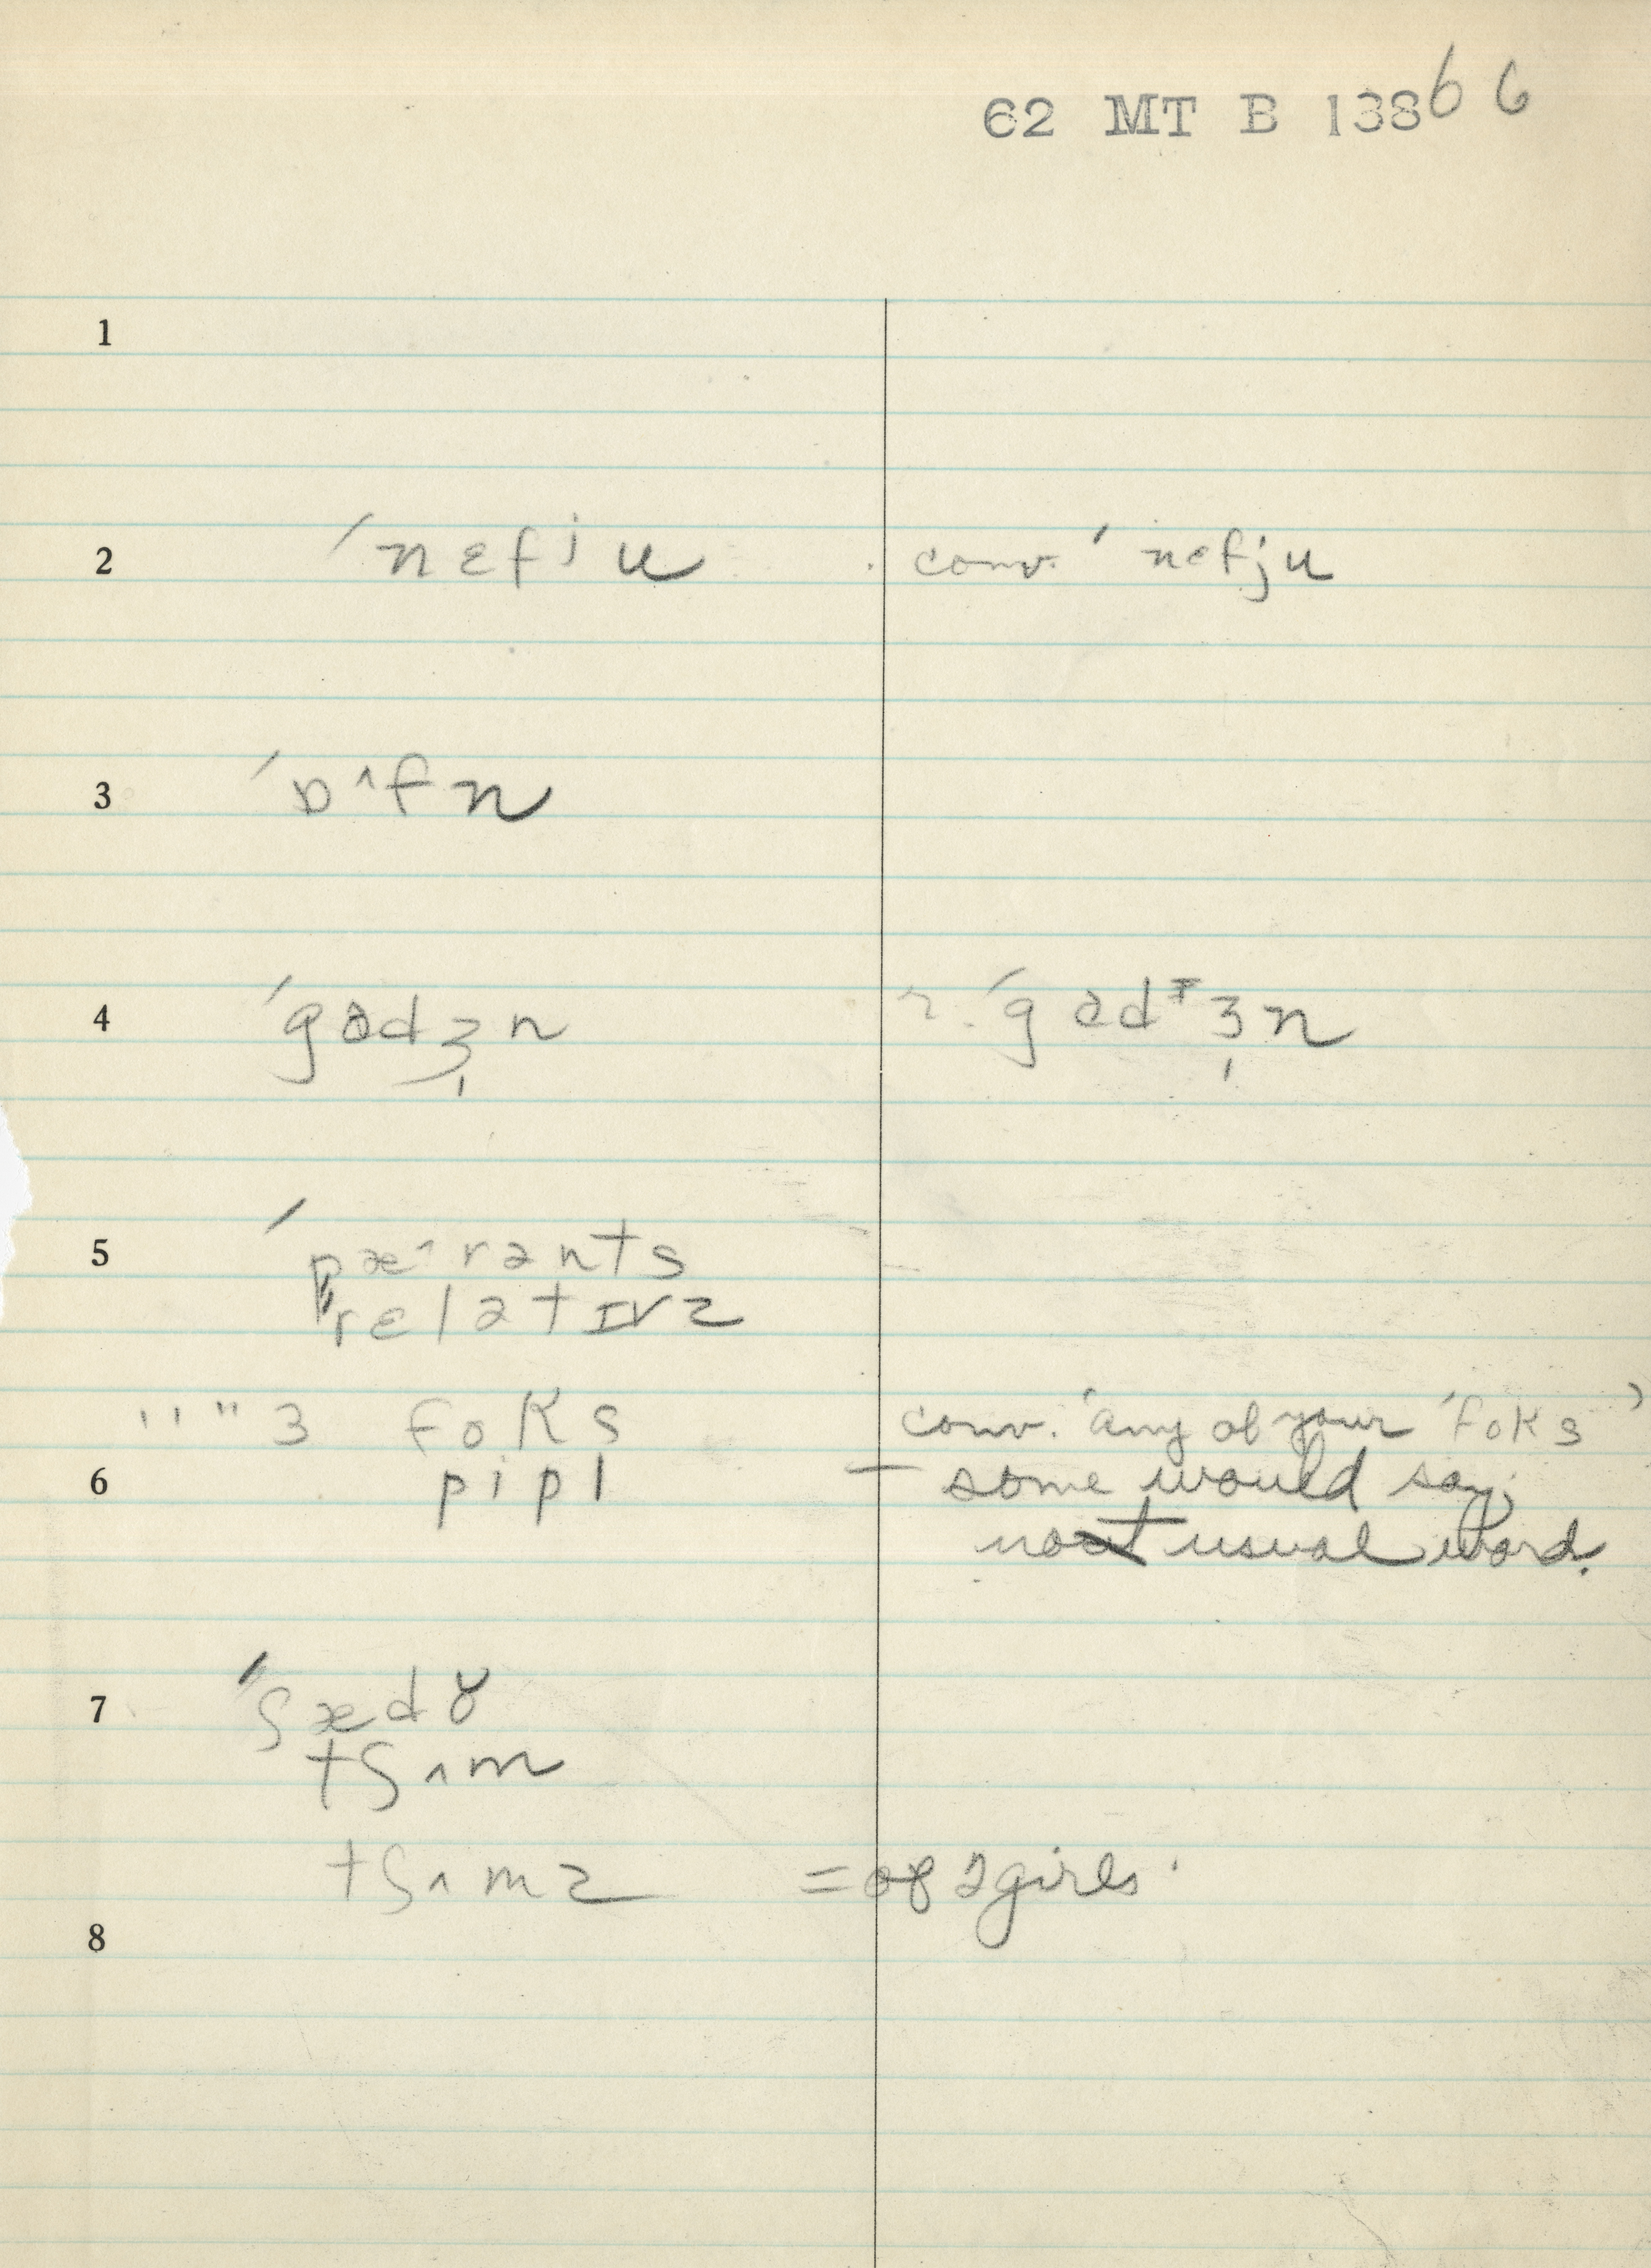 62 MT B 138 66
1
2 ′nɛfiu conv. ′nɛfju
3 ′ɒ^fn
4 ′gɑdʒn r. ′gɑdᵻʒn
5 ′pæ^rənts
′′rɛlətɪvz
' ' " 3 foks conv. 'any of your ′foks'
6 pipl – some would say;
not usual word.
7 ′′ʃædɤ
tʃʌm
tʃʌmz = of 2 girls.
8